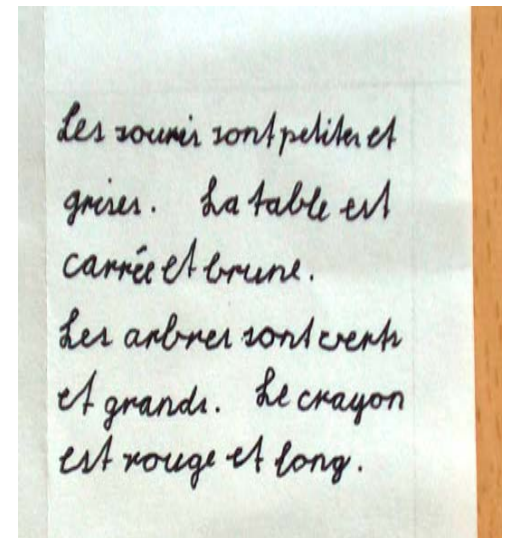 Les souris sont petites et
grises. La table est
carrée et brune.
Les arbres sont verts
et grands. Le crayon
est rouge et long.